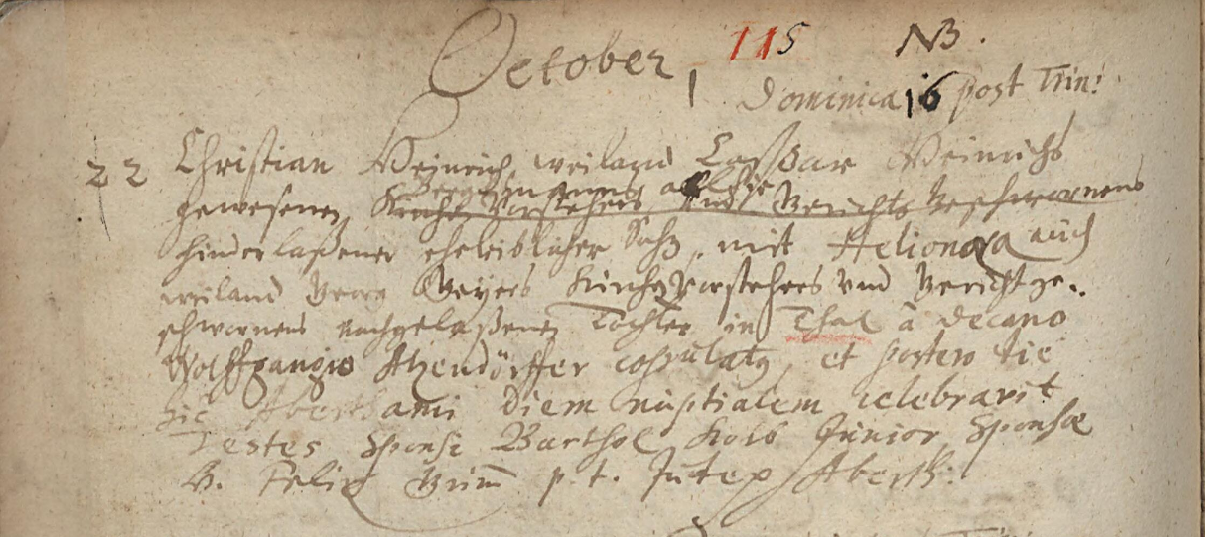 October 115 NB.
Dominica 16 post Trin:
22 Christian Heinrich, weiland Caspar Heinrichs
Bergmanns allhie
gewesenen Kirchen Vorstehers und Gerichts Geschwornens
hinderlaßener eheleiblicher Sohn, mit Helionora auch
weiland Georg Geyers Kirchen Vorstehers und Gericht ge-
schwornens nachgelaßenen Tochter in Thal à Decano
Wolffgangio copulatq, et postero die
hic Aberthami Diem nuptialem celebravit
Testes Sponsi Barthol Kolb Junior, Sponsæ
H. Felix Grim p. t. Judex Aberth: